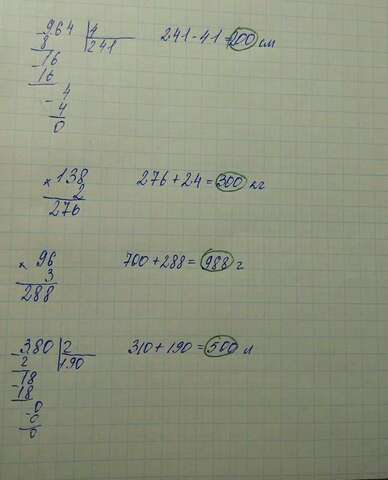 964 | 4
8 | 241
16
16
4
4
0
241 - 41 = 200 см
× 138
2
276
276 + 24 = 300 кг
× 96
3
288
700 + 288 = 988 г
380 | 2
2 | 190
18
18
0
0
0
310 + 190 = 500 л